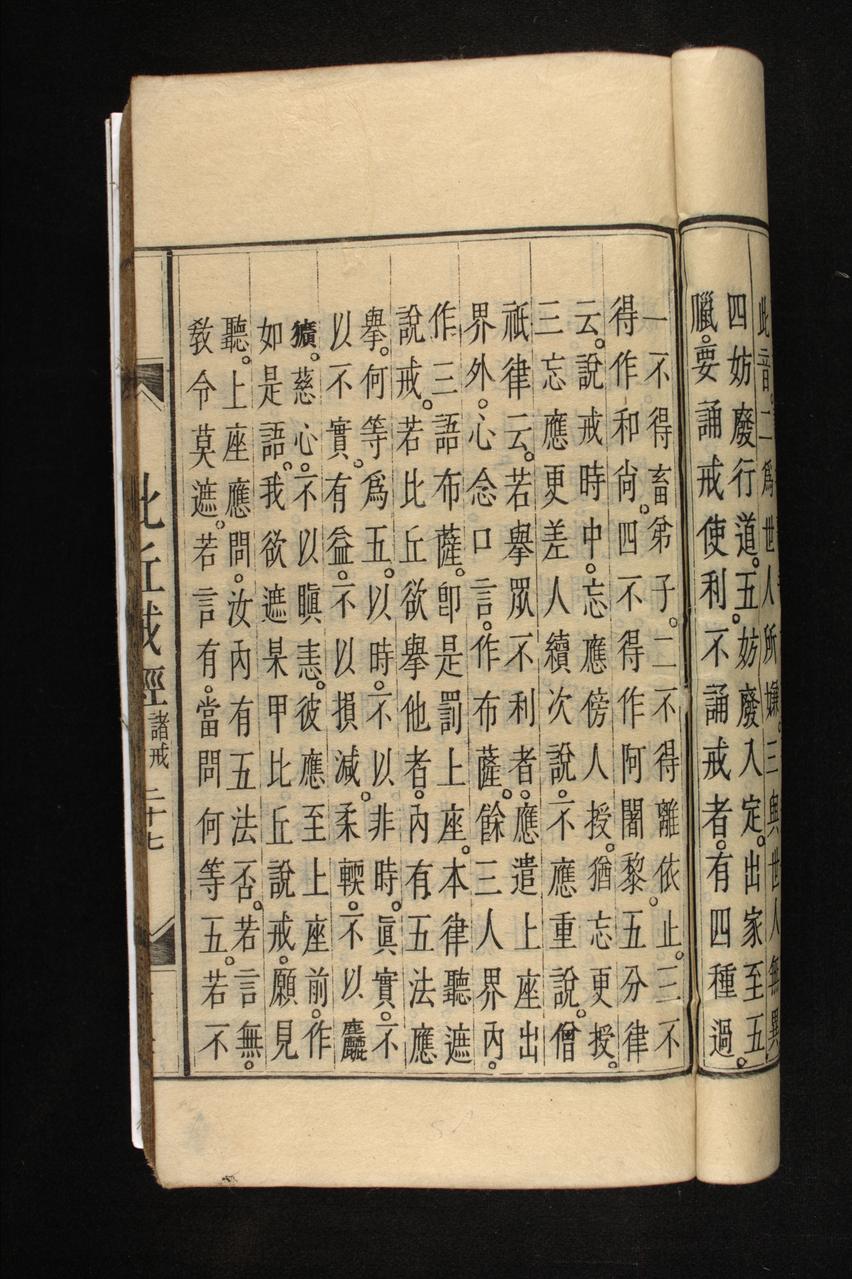 此音。二爲世人所嫌。三與世人無異。
四妨廢行道。五妨廢入定。出家至五
臘。要誦戒使利。不誦戒者。有四種過。
一不得畜弟子。二不得離依止。三不
得作和尚。四不得作阿闍黎。五分律
云。說戒時中。忘應傍人授。猶忘更授。
三忘應更差人續次說。不應重說。僧
祇律云。若擧眾不利者。應遣上座出
界外。心念口言。作布薩。餘三人界內。
作三語布薩。卽是罰上座。本律聽遮
說戒。若比丘欲擧他者。內有五法應
擧。何等爲五。以時。不以非時。眞實。不
以不實。有益。不以損減。柔輭。不以麤
獷。慈心。不以瞋恚。彼應至上座前。作
如是語。我欲遮某甲比丘說戒。願見
聽。上座應問。汝內有五法否。若言無。
敎令莫遮。若言有。當問何等五。若不
比丘戒經 諸戒 二十七